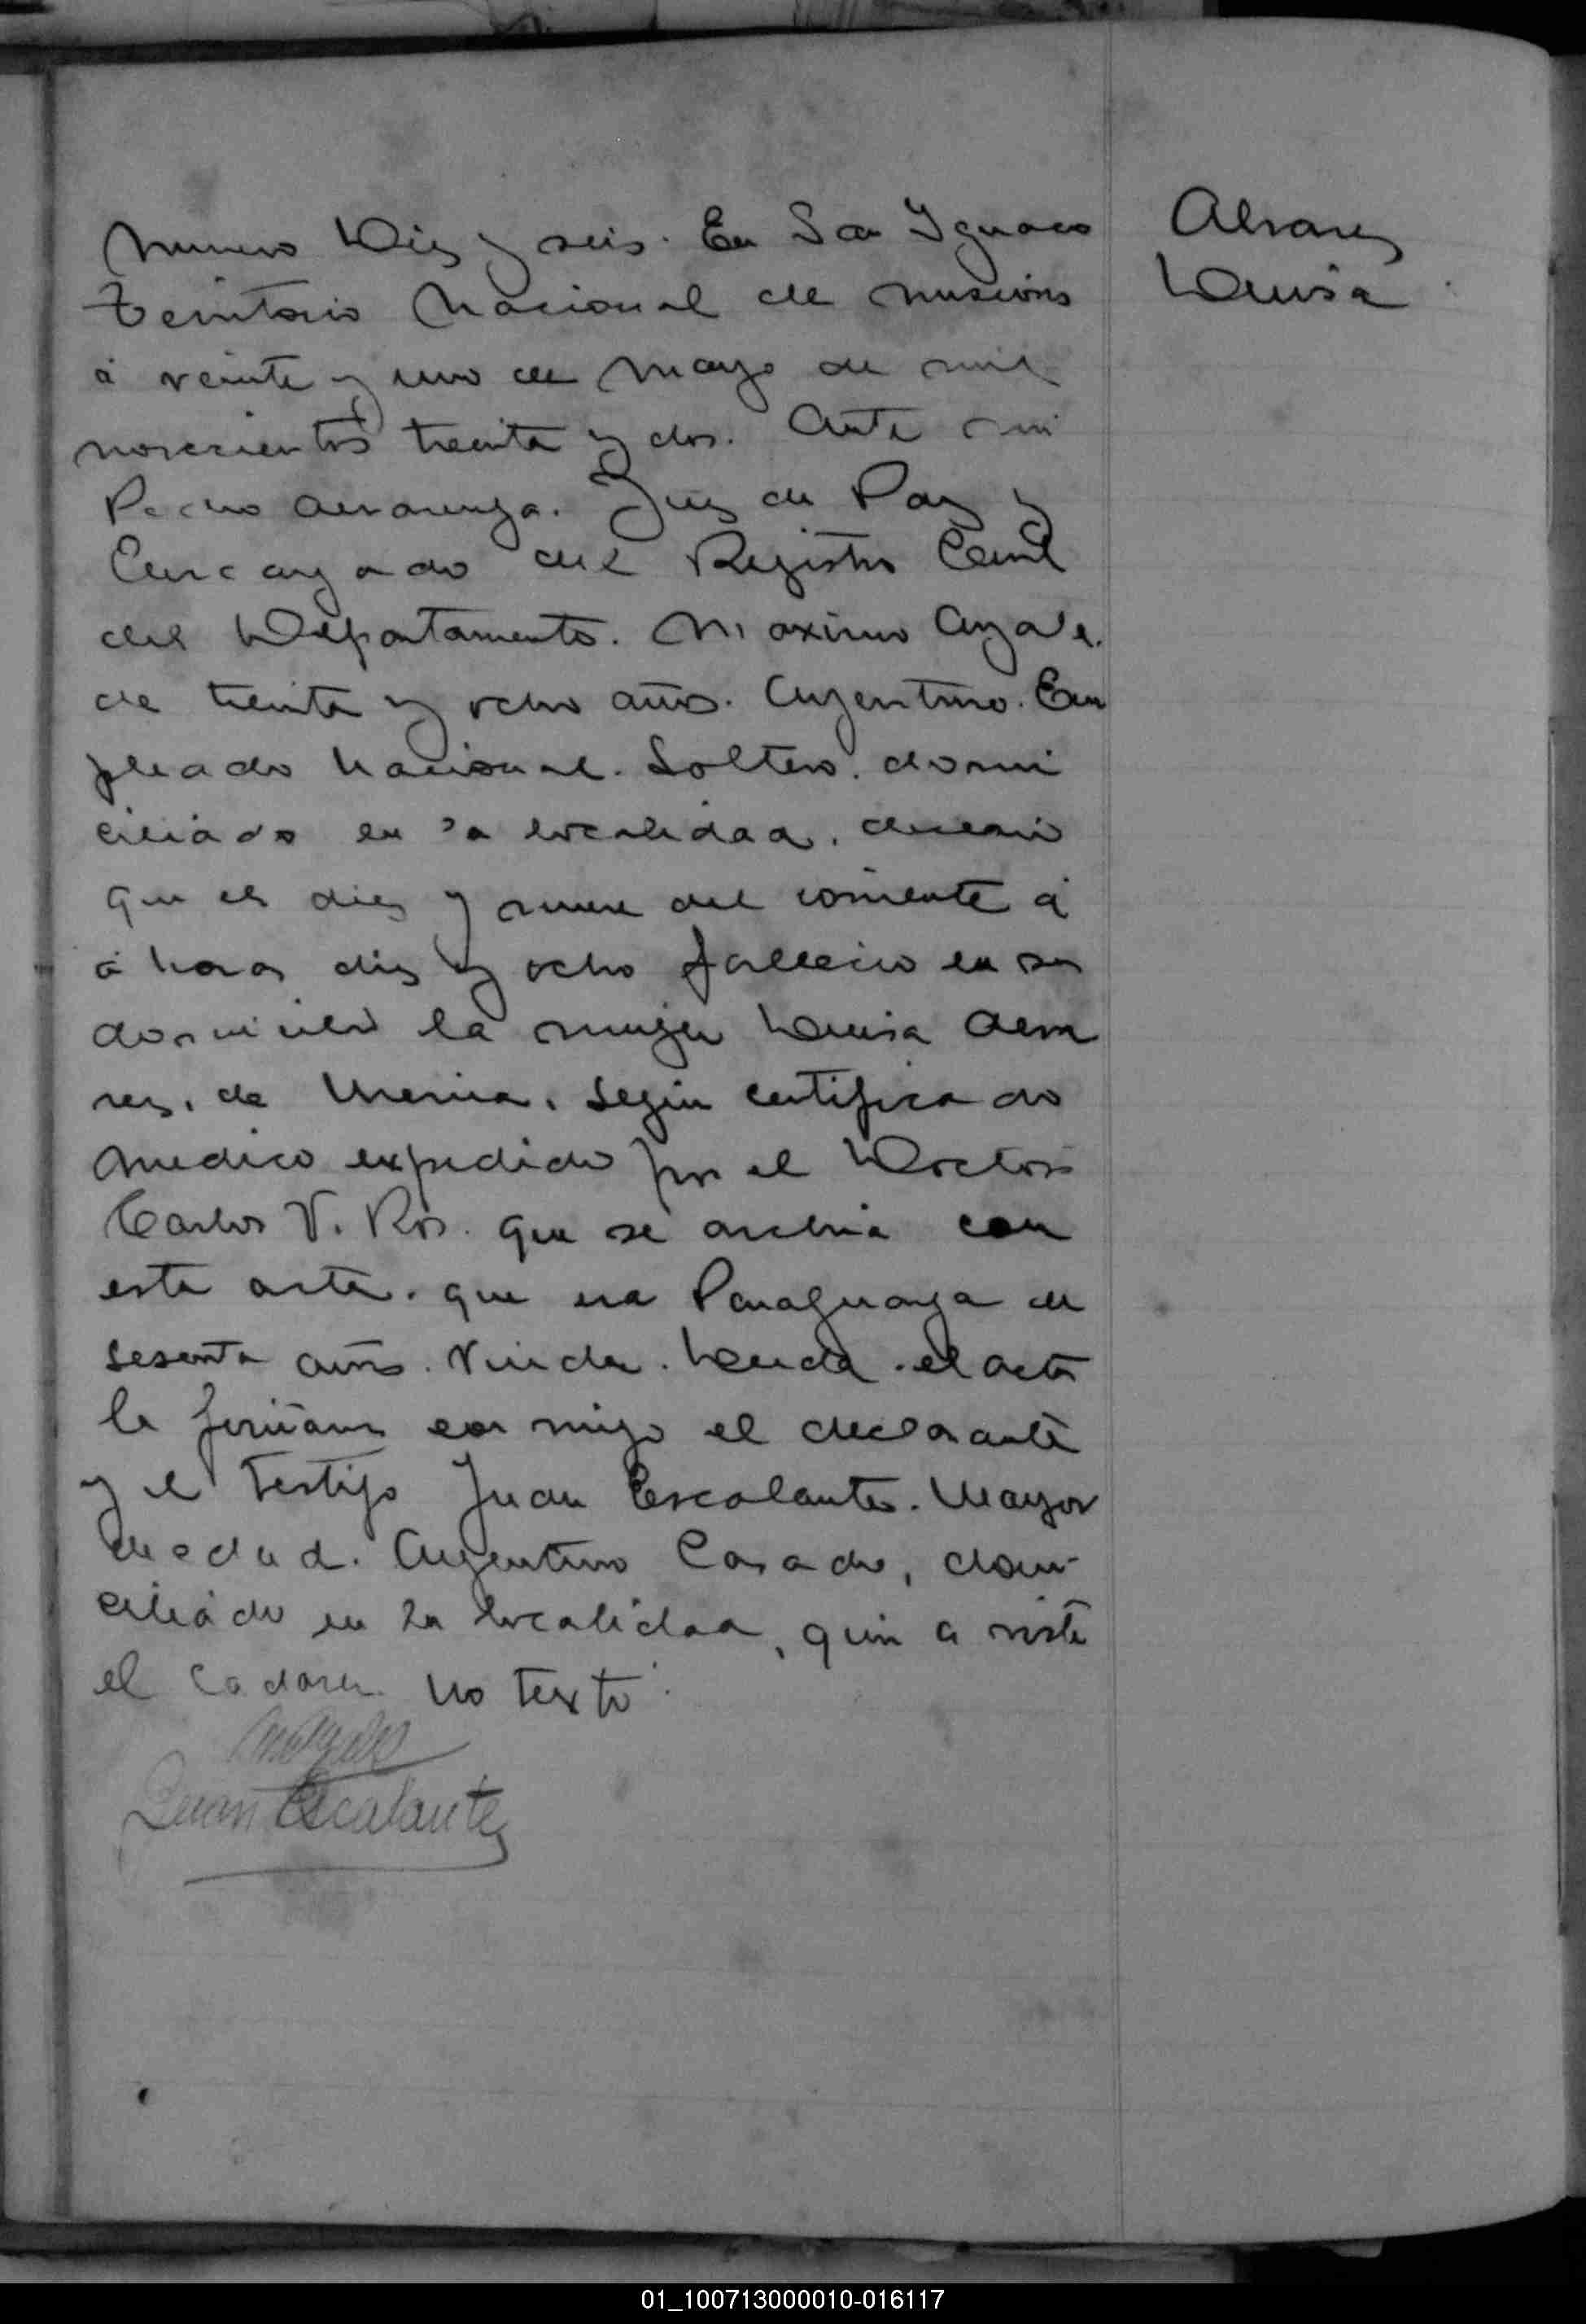 Numero Diez y seis. En San Ignacio
Alvarez
Territorio Nacional de Misiones
Luisa
á veinte y uno de Mayo de mil
novecientos treinta y dos. Ante mi
Pedro Alvarenga. Juez de Paz y
Encargado del Registro Civil
del Departamento. Maximo Ayala.
de treinta y ocho años. Argentino. Em
pleado Nacional. Soltero. domi
ciliado en la localidad. declaró
que el diez y nueve del corriente á
á horas diez y ocho fallecio en su
domicilio la mujer Luisa Alva
rez. de . Según certificado
medico expedido por el Doctor
Carlos V. Ros. que se archiva con
esta acta. que era Paraguaya de
sesenta años. Viuda. Leida el acta
la firman con migo el declarante
y el testigo Juan Escalante. Mayor
de edad. Argentino Casado, domi-
ciliado en la localidad, quien a visto
el cadaver. No texto.
Juan Escalante
01_100713000010-016117